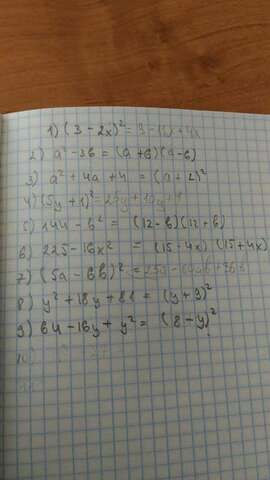 1) (3 - 2x)² = 9 - 12x + 4x
2) a² - 3b = (a + b)(a - b)
3) a² + 4a + 4 = (a + 2)²
4) (5y + 1)² = 25y + 10y + 1
5) 144 - b² = (12 - b)(12 + b)
6) 225 - 16x² = (15 - 4x)(15 + 4x)
7) (5a - 6b)² =
8) y² + 18y + 81 = (y + 9)²
9) 64 - 16y + y² = (8 - y)²
10)